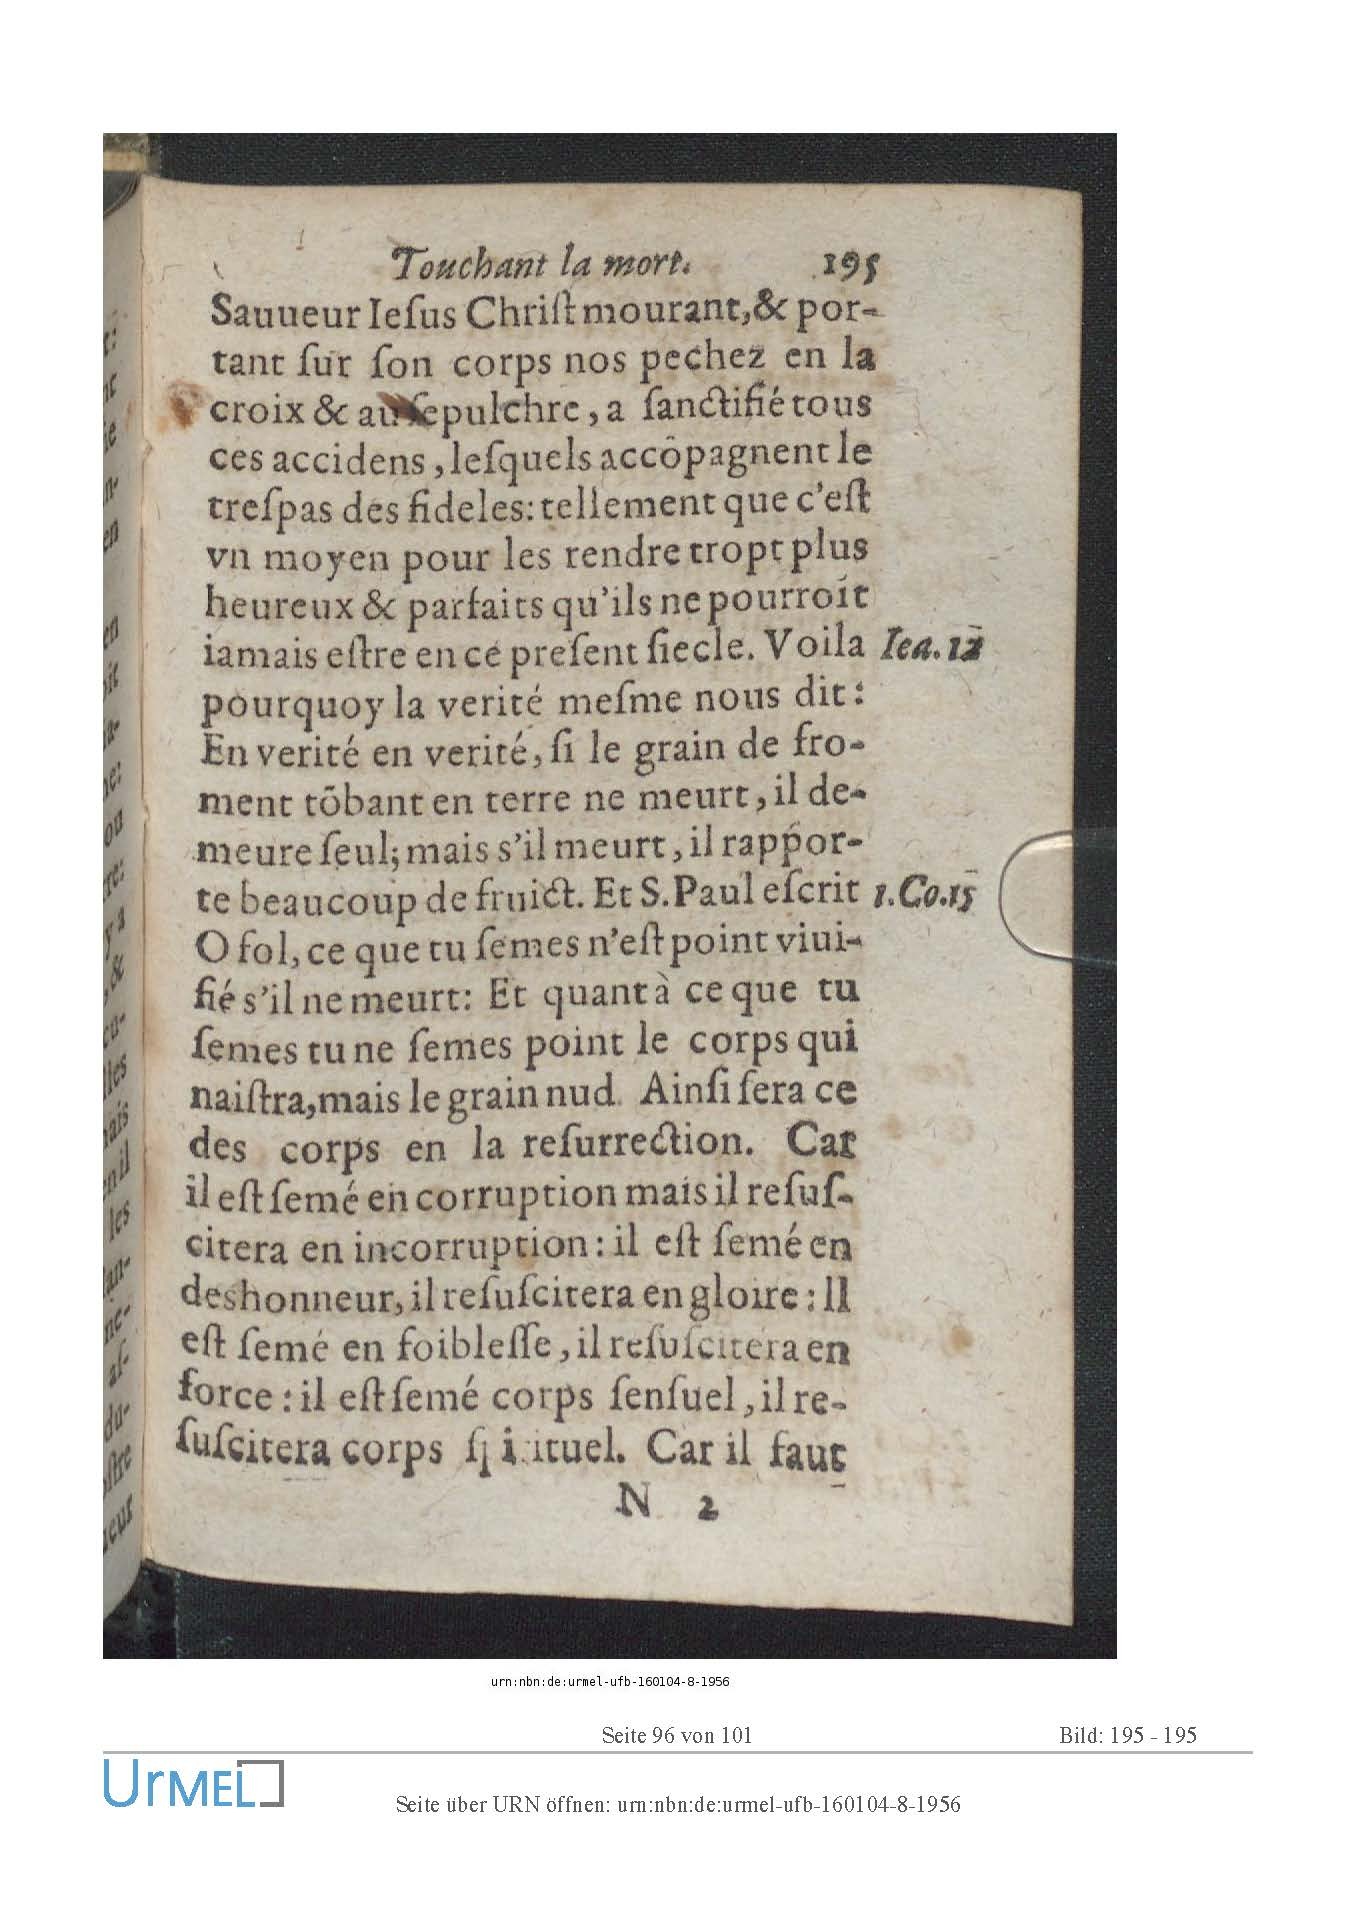 Touchant la mort. 195
Sauueur Ieſus Chriſt mourant, & por-
tant ſur ſon corps nos pechez en la
croix & au ſepulchre, a ſanctifié tous
ces accidens, leſquels accōpagnent le
treſpas des fideles: tellement que c'eſt
vn moyen pour les rendre tropt plus
heureux & parfaits qu'ils ne pourroít
iamais eſtre en ce preſent ſiecle. Voila Iea. 12
pourquoy la verité meſme nous dit:
En verité en verité, ſi le grain de fro-
ment tōbant en terre ne meurt, il de-
meure ſeul; mais s'il meurt, il rappor-
te beaucoup de fruict. Et S. Paul eſcrit 1. Co. 15
O fol, ce que tu ſemes n'eſt point viui-
fié s'il ne meurt: Et quant à ce que tu
ſemes tu ne ſemes point le corps qui
naiſtra, mais le grain nud. Ainſi ſera ce
des corps en la reſurrection. Car
il eſt ſemé en corruption mais il reſuſ-
citera en incorruption: il eſt ſemé en
deshonneur, il reſuſcitera en gloire: Il
eſt ſemé en foibleſſe, il reſuſcitera en
force: il eſt ſemé corps ſenſuel, il re-
ſuſcitera corps Car il faut
N 2
urn:nbn:de:urmel-ufb-160104-8-1956
Seite 96 von 101 Bild: 195 - 195
UrMEL
Seite über URN öffnen: urn:nbn:de:urmel-ufb-160104-8-1956